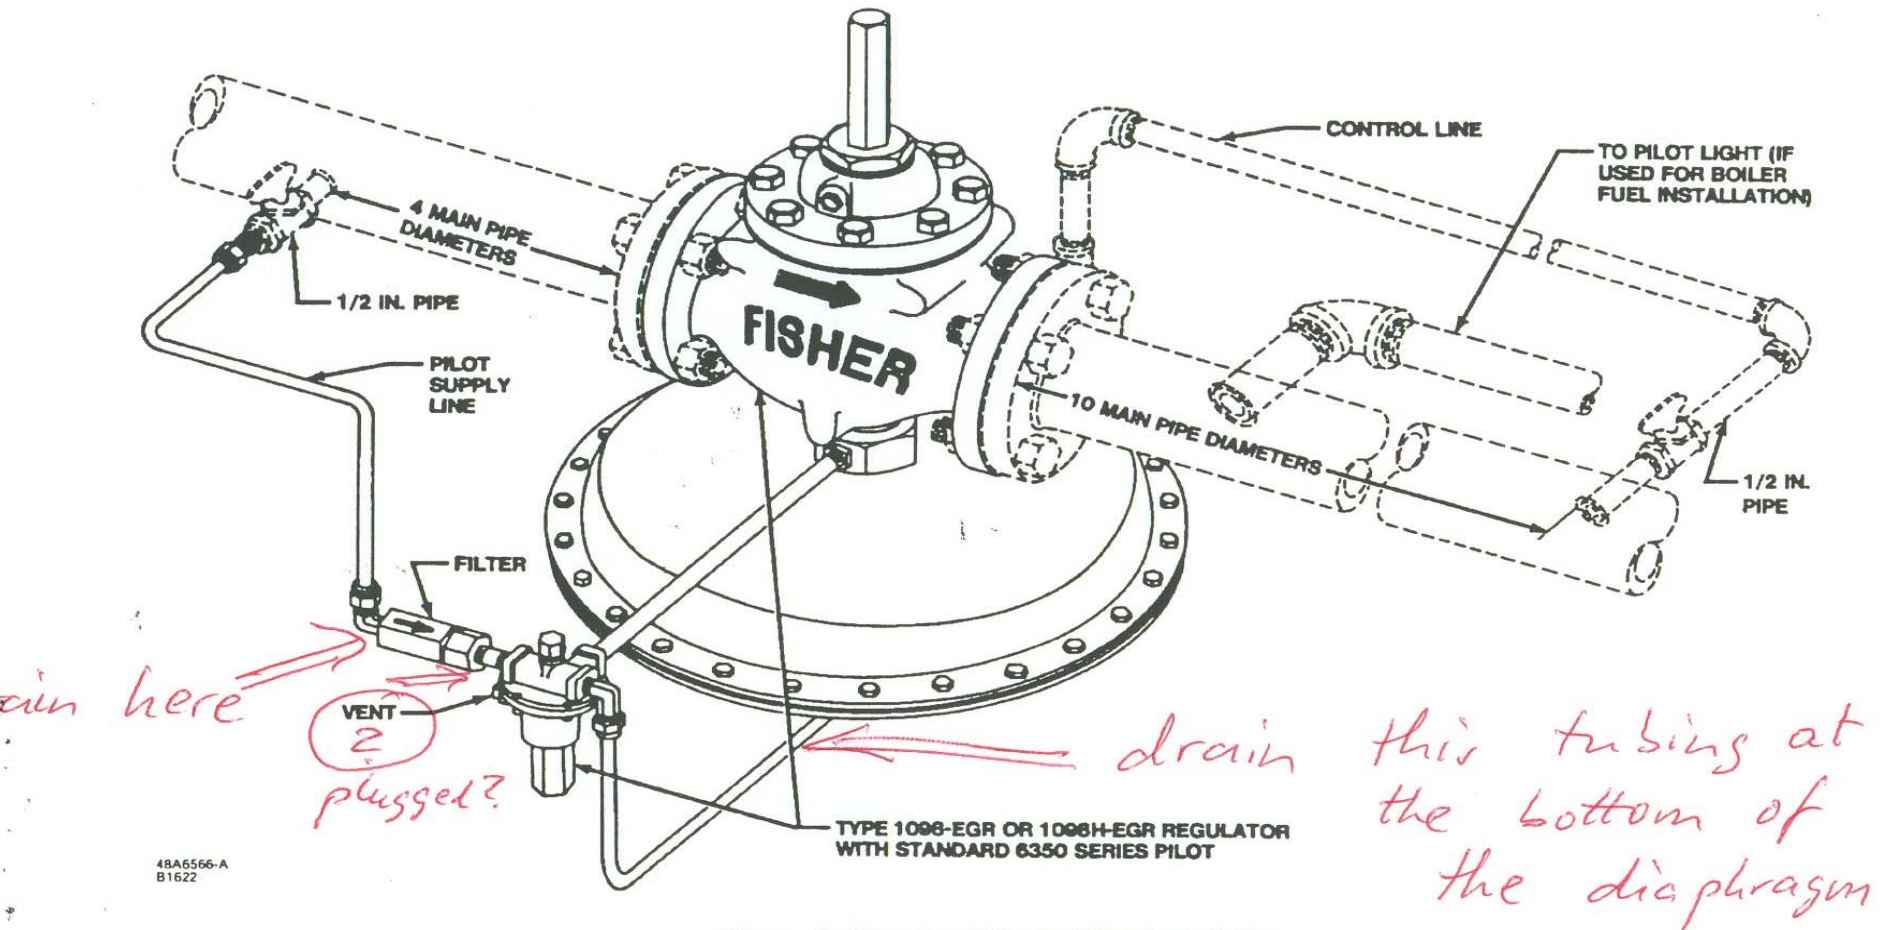 CONTROL LINE
TO PILOT LIGHT (IF
USED FOR BOILER
FUEL INSTALLATION)
4 MAIN PIPE
DIAMETERS
1/2 IN. PIPE
FISHER
PILOT
SUPPLY
LINE
10 MAIN PIPE DIAMETERS
1/2 IN.
PIPE
FILTER
here
VENT
2
plugged?
drain this tubing at
the bottom of
the diaphragm
TYPE 1098-EGR OR 1098H-EGR REGULATOR
WITH STANDARD 6350 SERIES PILOT
48A6566-A
B1622